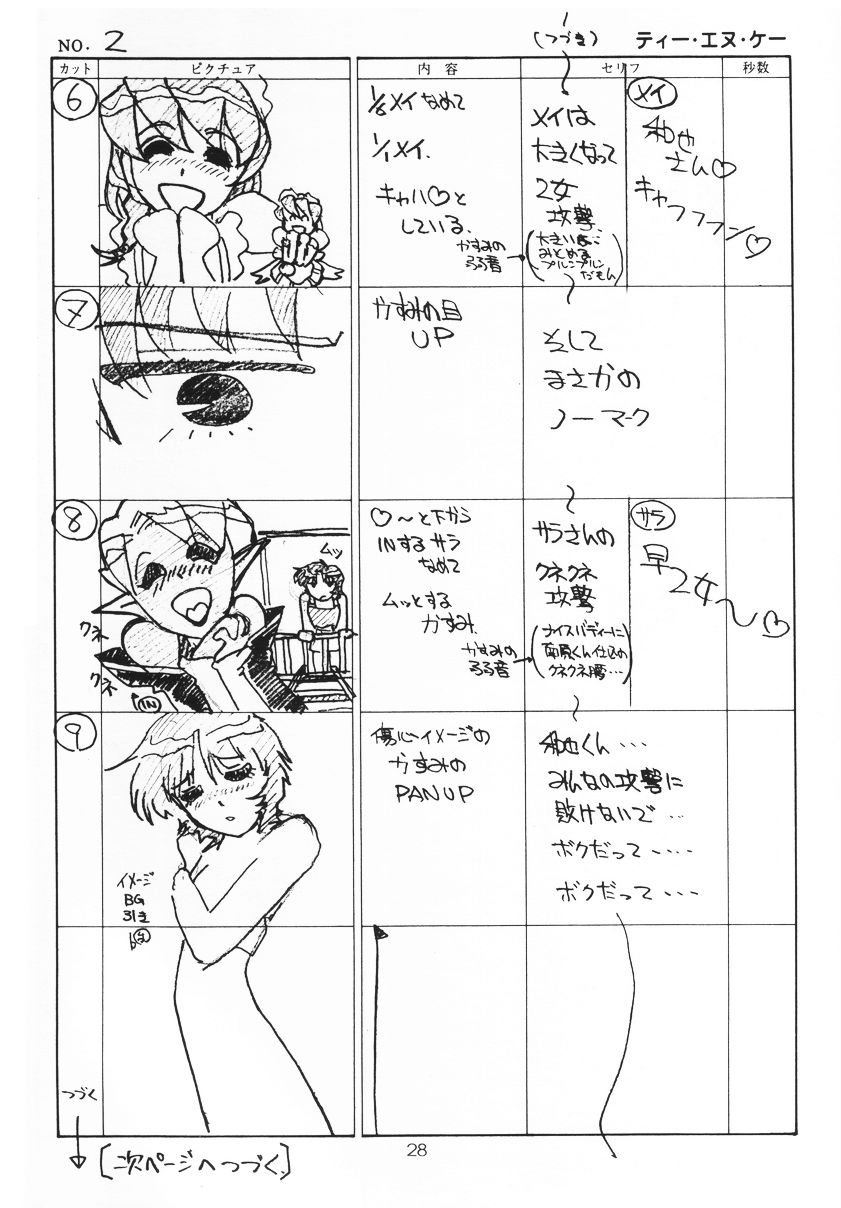 NO. 2
(つづき)
ティー・エヌ・ケー
カット
ピクチュア
内容
セリフ
秒数
6
1/8メイなめて
1/1メイ.
キャハ♡と
している.
かすみの
弱音
メイは
大きくなって
乙女
攻撃.
プルンプルン
だもん
メイ
和也
さん♡
キャフフフン♡
7
かすみの目
UP
そして
まさかの
ノーマーク
8
クネ
クネ
IN
ムッ
♡〜と下から
INするサラ
なめて
ムッとする
かすみ.
かすみの
弱音
サラさんの
クネクネ
攻撃
ナイスバディーに
南原くん仕込の
クネクネ腰…
サラ
早乙女〜♡
9
イメージ
BG
引き
傷心イメージの
かすみの
PAN UP
和也くん・・・
みんなの攻撃に
敗けないで・・
ボクだって・・・・
ボクだって・・・
つづく
[次ページへつづく.]
28